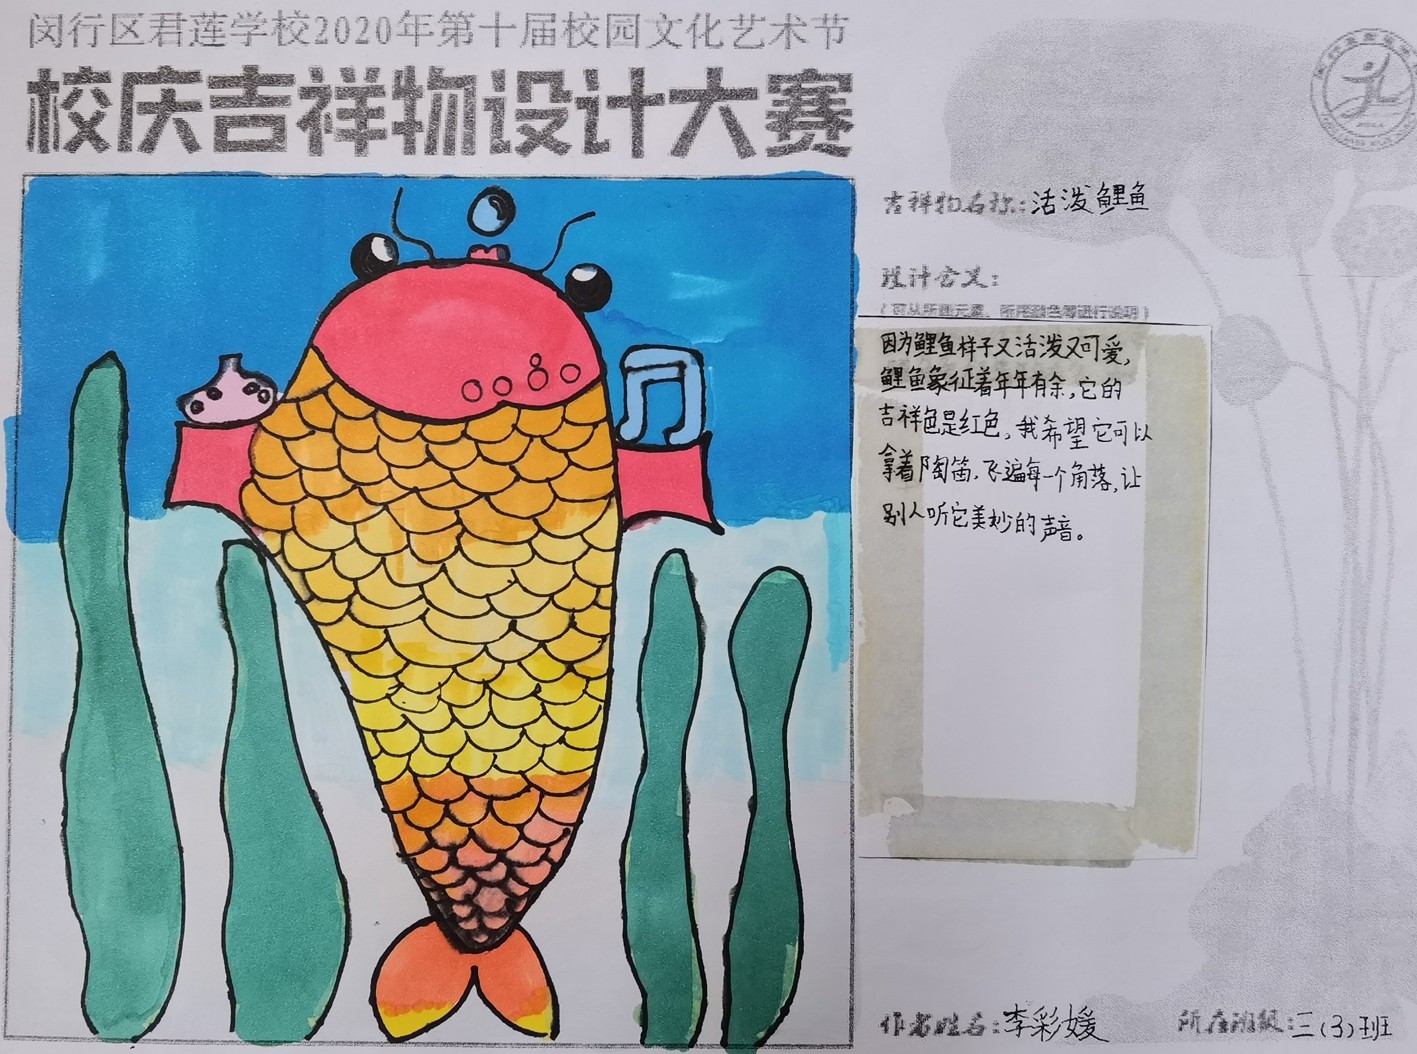 闵行区君莲学校2020年第十届校园文化艺术节
校庆吉祥物设计大赛
吉祥物名称:活泼鲤鱼
设计含义:
(可从所画元素、所用颜色等进行说明)
因为鲤鱼样子又活泼又可爱,
鲤鱼象征着年年有余,它的
吉祥色是红色,我希望它可以
拿着陶笛,飞遍每一个角落,让
别人听它美妙的声音。
作者姓名:李彩媛
所在班级:三(3)班